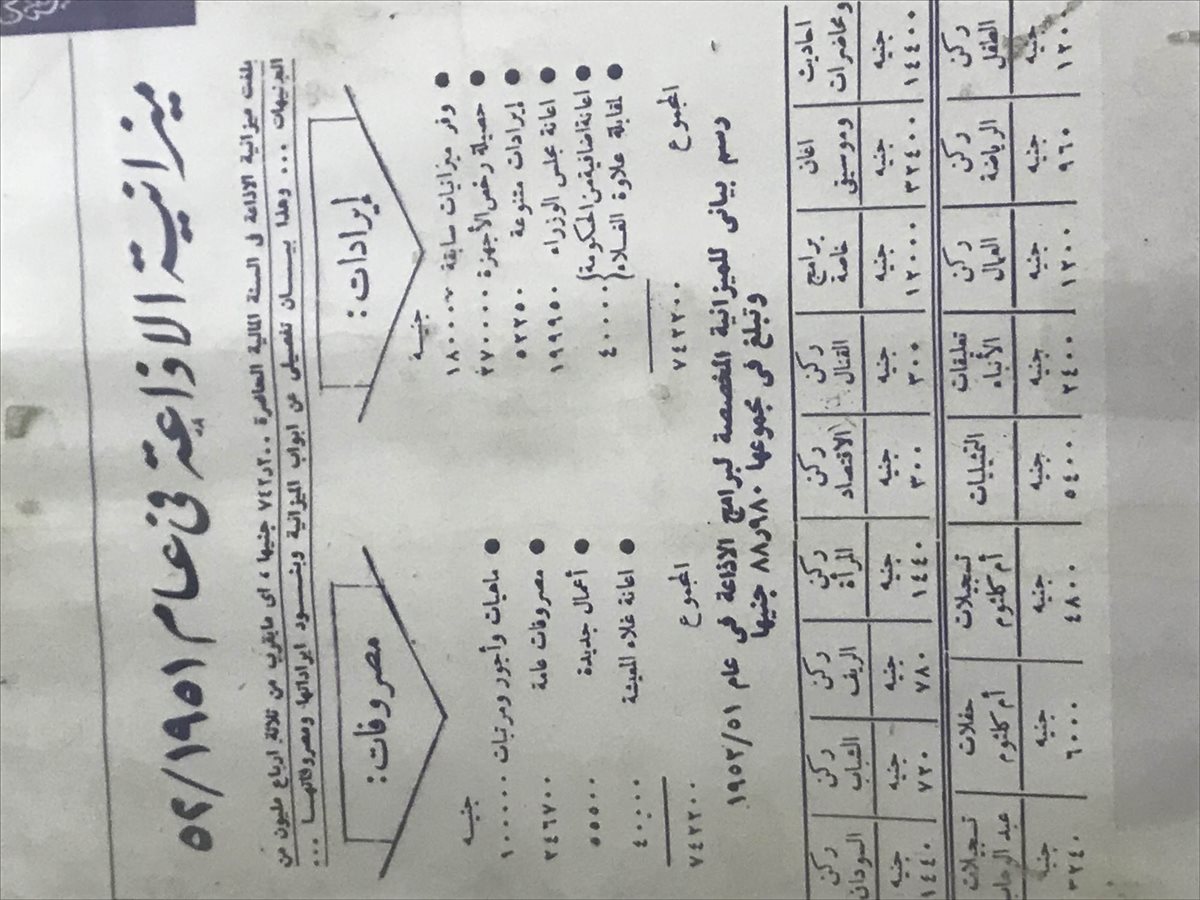 ميزانية الاذاعة في عام ١٩٥١/٥٢
بلغت ميزانية الاذاعة فى السنة المالية الحاضرة ٧٤٢٫٢٠٠ جنيها ، اى مايقرب من ثلاثة ارباع مليون من
الجنيهات ... وهذا بيان تفصيلى عن ابواب الميزانية وبنود ايراداتها ومصروفاتها ...
إيرادات:
جنيه
● وفر ميزانيات سابقة ١٨٠٠٠٠
● حصيلة رخص الأجهزة ٢٧٠٠٠٠
● إيرادات متنوعة ٥٢٢٥٠
● اعانة مجلس الوزراء ١٩٩٩٥٠
● اعانة اضافية من الحكومة
● لمقابلة علاوة الغلاء ٤٠٠٠٠
المجموع ٧٤٢٢٠٠
مصروفات:
جنيه
● ماهيات وأجور ومرتبات ١٠٠٠٠٠
● مصروفات عامة ٢٤٦٧٠٠
● أعمال جديدة ٥٥٥٠٠
● اعانة غلاء المعيشة ٤٠٠٠٠
المجموع ٧٤٢٢٠٠
رسم بيانى للميزانية المخصصة لبرامج الاذاعة فى عام ١٩٥٢/٥١
وتبلغ فى مجموعها ٨٨٫٩٨٠ جنيها
احاديث اغان برامج ركن ركن ركن ركن ركن ركن
ومحاضرات وموسيقى خاصة القتال الاقتصاد المرأة الريف الشباب السودان
جنيه جنيه جنيه جنيه جنيه جنيه جنيه جنيه جنيه
١٤٤٠٠ ٣٢٤٠٠ ١٢٠٠٠ ٣٠٠ ٣٠٠ ١٤٤٠ ٧٨٠ ٧٢٠ ١٤٤٠
ركن ركن ركن تعليقات التمثيليات تسجيلات حفلات تسجيلات
الطفل الرياضة العمال الأنباء أم كلثوم أم كلثوم عبد الوهاب
جنيه جنيه جنيه جنيه جنيه جنيه جنيه جنيه
١٢٠٠ ٩٦٠ ١٢٠٠ ٢٤٠٠ ٥٤٠٠ ٤٨٠٠ ٦٠٠٠ ٣٢٤٠